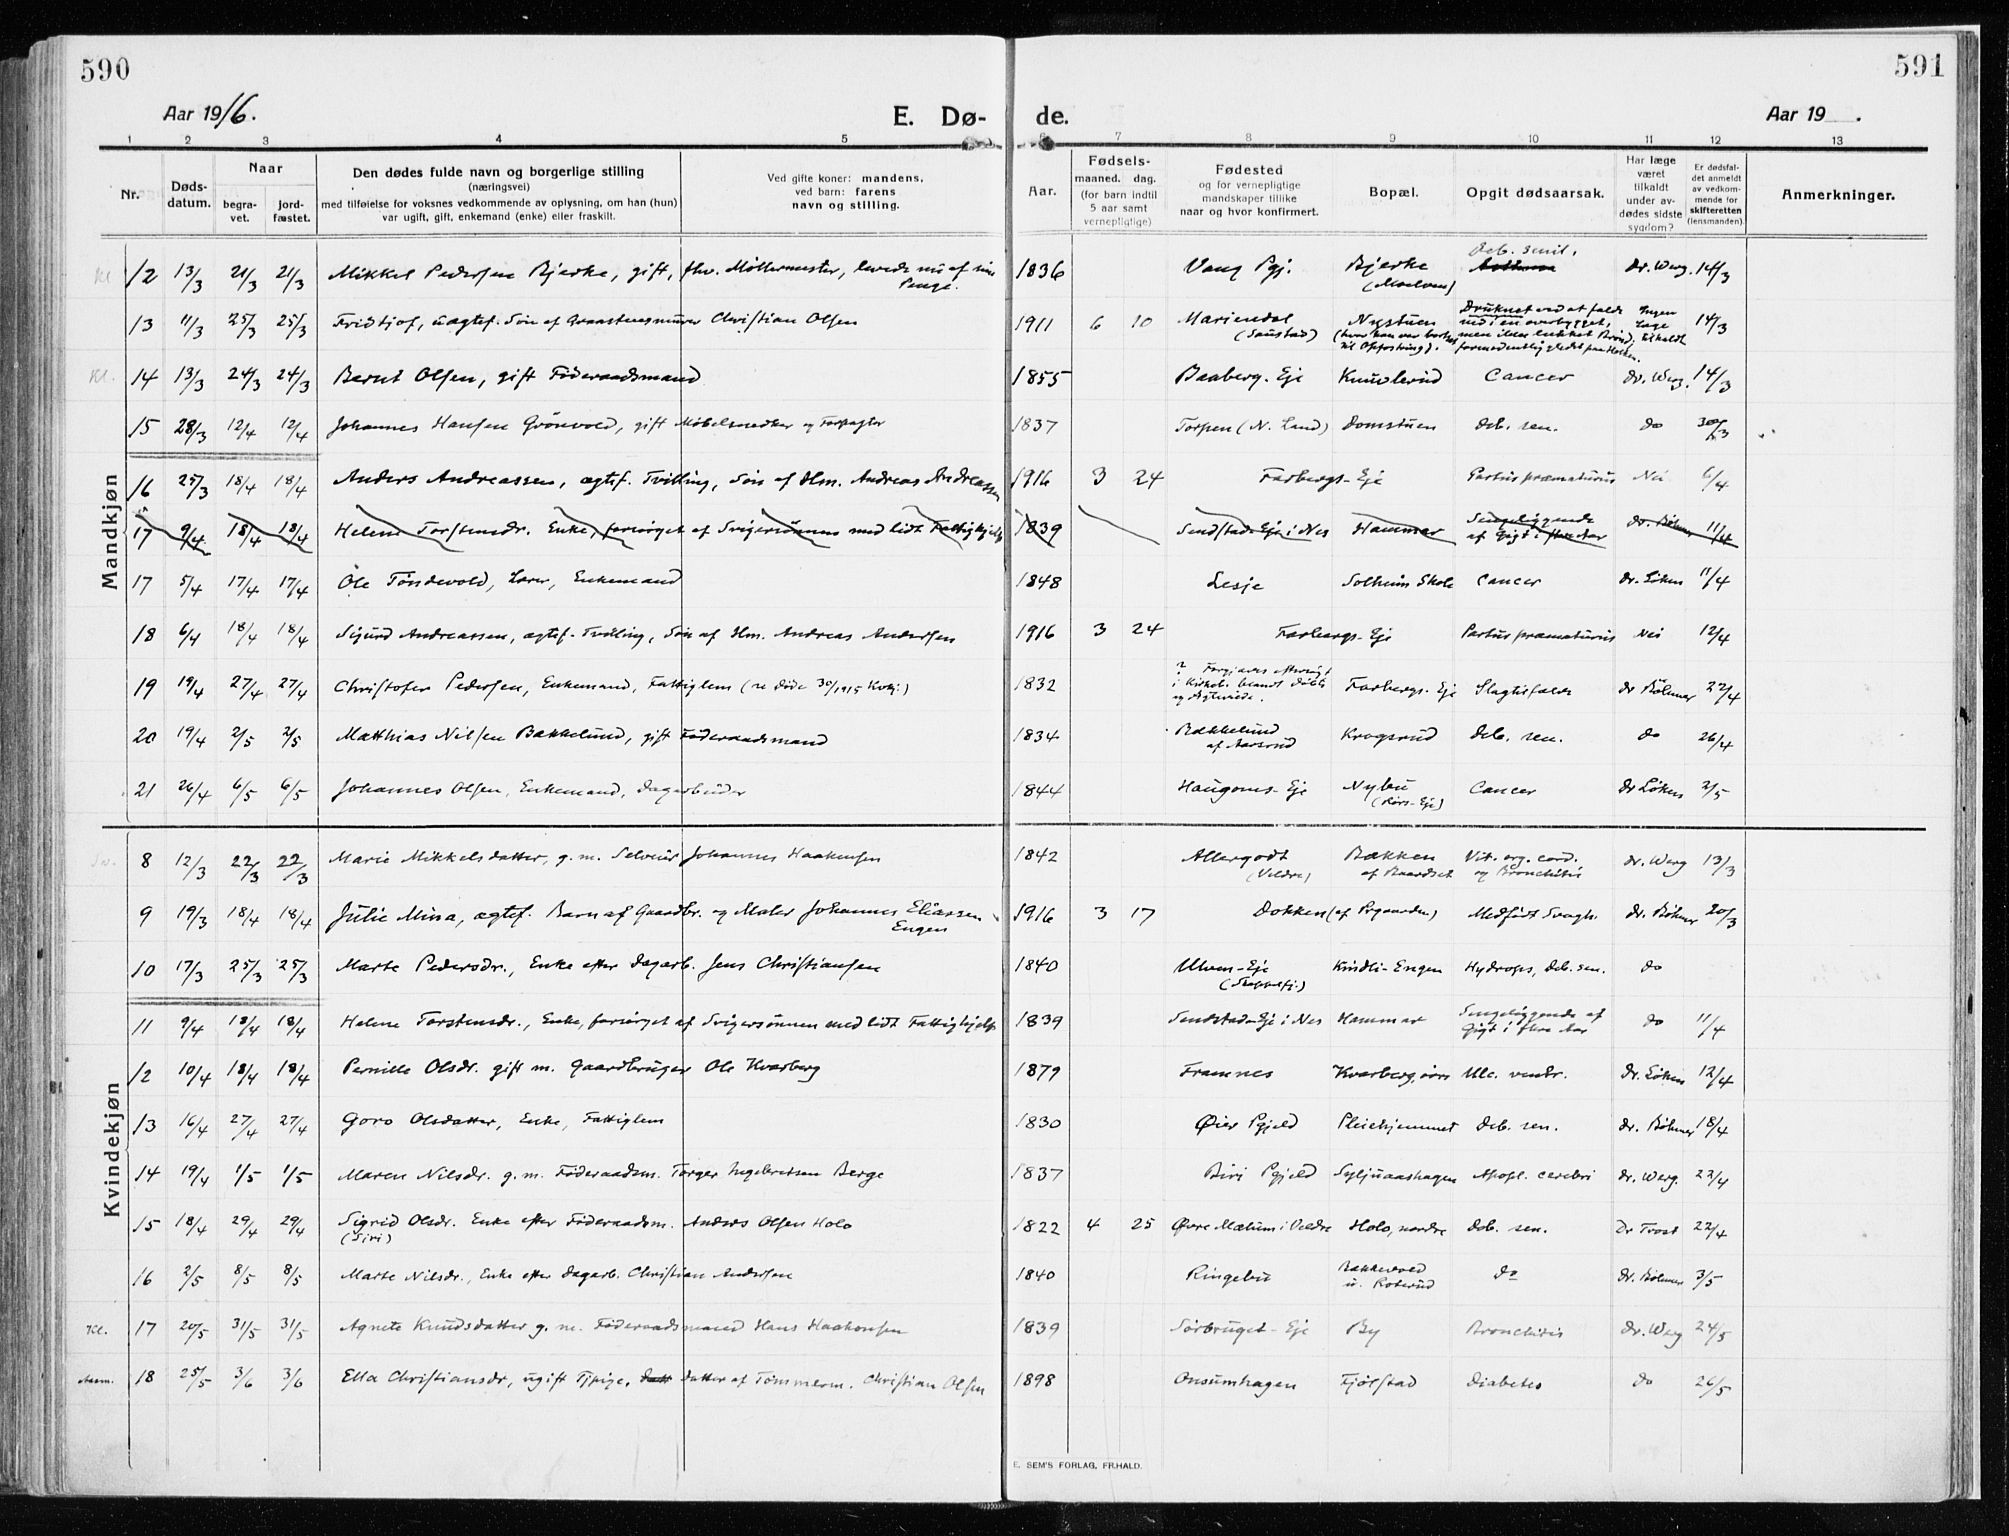 590
591
Aar 1916.
E. Dø-
de.
Aar 19 .
1 2 3 4 5 6 7 8 9 10 11 12 13
Nr.
Døds-
datum.
Naar
begra-
vet.
jord-
fæstet.
Den dødes fulde navn og borgerlige stilling
(næringsvei)
med tilføielse for voksnes vedkommende av oplysning, om han (hun)
var ugift, gift, enkemand (enke) eller fraskilt.
Ved gifte koner: mandens,
ved barn: farens
navn og stilling.
Aar.
Fødsels-
maaned. dag.
(for barn indtil
5 aar samt
vernepligtige)
Fødested
og for vernepligtige
mandskaper tillike
naar og hvor konfirmert.
Bopæl.
Opgit dødsaarsak.
Har læge
været
tilkaldt
under av-
dødes sidste
sygdom?
Er dødsfal-
det anmeldt
av vedkom-
mende for
skifteretten
(lensmanden).
Anmerkninger.
Mandkjøn
Kl 12 13/3 21/3 21/3 Mikkel Pedersen Bjerke, gift, fhv. Møllermester, levede nu af sine Penge. 1836 Vang Pgj. Bjerke (Moelven) Deb. senil. Asthma Dr. Werg. 14/3
13 11/3 25/3 25/3 Fridtjof, uagtef. Søn af Graastensmurer Christian Olsen 1911 6 10 Mariendal (Saustad) Nystuen (hvor han var bortsat til Opfostring). Druknet ved at falde ned i en overbygget, men ikke lukket Brønd, formodentlig gledet paa Holken. Ingen Læge tilkaldt 14/3
Kl. 14 13/3 24/3 24/3 Bernt Olsen, gift Føderaadsmand 1855 Baaberg. Eje Knuvlerud Cancer Dr. Werg. 14/3
15 28/3 12/4 12/4 Johannes Hansen Grønvold, gift Møbelsnedker og Forpagter 1837 Torpen (N. Land) Domstuen Deb. sen. do 30/3
16 25/3 18/4 18/4 Anders Andreassen, ægtef. Tvilling, Søn af Hm. Andreas Andreassen 1916 3 24 Farbergs-Eje Partus præmaturus Nei 6/4
17 9/4 18/4 18/4 Helene Torstensdr. Enke, forsørget af Svigersønnen med lidt Fattighjelp 1839 Sendstad-Eje i Nes Hammer Sengeliggende af Gigt i flere Aar dr. Bøhmer 11/4
17 5/4 17/4 17/4 Ole Tøndevold, Lærer, Enkemand 1848 Lesje Solheim Skole Cancer dr. Løken 11/4
18 6/4 18/4 18/4 Sigurd Andreassen, ægtef. Tvilling, Søn af Hm. Andreas Andersen 1916 3 24 Farbergs-Eje Partus præmaturus Nei 12/4
19 19/4 27/4 27/4 Christofer Pedersen, Enkemand, Fattiglem 1832 ? Forgjæves eftersøgt i Kirkeb. blandt døbte og ægteviede. Farbergs. Eje Slagtilfælde dr Bøhmer 22/4
20 19/4 2/5 2/5 Matthias Nilsen Bakkelund, gift Føderaadsmand 1834 Bakkelund af Aarsrud Krogsrud deb. sen. do 26/4
21 26/4 6/5 6/5 Johannes Olsen, Enkemand, Dagarbeider 1844 Haugoms-Eje Nybu (Rørs-Eje) Cancer dr Løken 2/5
Kvindekjøn
8 12/3 22/3 22/3 Marie Mikkelsdatter, g. m. Selveier Johannes Haakensen 1842 Allergodt (Veldre) Bækken af Baardset Vit. org. cord. og Bronchitis dr. Werg 13/3
9 19/3 18/4 18/4 Julie Mina, ægtef. Barn af Gaardbr. og Maler Johannes Eliassen Engen 1916 3 17 Dokken (af Prgaarden) Medfødt Svagh. dr. Bøhmer 20/3
10 17/3 25/3 25/3 Marte Pedersdr., Enke efter Dagarb. Jens Christiansen 1840 Ulven-Eje Kindli-Engen Hydrops, deb. sen. do
11 9/4 18/4 18/4 Helene Torstensdr., Enke, forsørget af Svigersønnen med lidt Fattighjelp 1839 Sendstad-Eje i Nes Hammer Sengeliggende af Gigt i flere Aar do 11/4
12 10/4 18/4 18/4 Pernille Olsdr. gift m. Gaardbruger Ole Kvarberg 1879 Framnes Kvarberg, øvre Ulc. ventr. dr. Løken 12/4
13 16/4 27/4 27/4 Goro Olsdatter, Enke, Fattiglem 1830 Øier Pgjeld Pleiehjemmet deb. sen. dr. Bøhmer 18/4
14 19/4 1/5 1/5 Maren Nilsdr. g. m. Føderaadsm. Torger Ingebretsen Berge 1837 Biri Pgjeld Syljuaashagen Apopl. cerebri dr. Werg. 22/4
15 18/4 29/4 29/4 Sigrid Olsdr. Enke efter Føderaadsm. Anders Olsen Holo (Siri) 1822 4 25 Øvre Mælum i Veldre Holo, nordre deb. sen. Dr Frost 22/4
16 2/5 8/5 8/5 Marte Nilsdr., Enke efter Dagarb. Christian Andersen 1840 Ringebu Bakkevold u. Roterud do dr. Bøhmer 3/5
Kl. 17 20/5 31/5 31/5 Agnete Knudsdatter g. m. Føderaadsmand Hans Haakonsen 1839 Sørbruget-Eje By Bronchitis dr. Werg 24/5
18 25/5 3/6 3/6 Ella Christiansdr, ugift Tjpige, Datt datter af Tømmerm. Christian Olsen 1898 Onsumhagen Fjølstad Diabetes do 26/5
E. SEM'S FORLAG, FR.HALD.